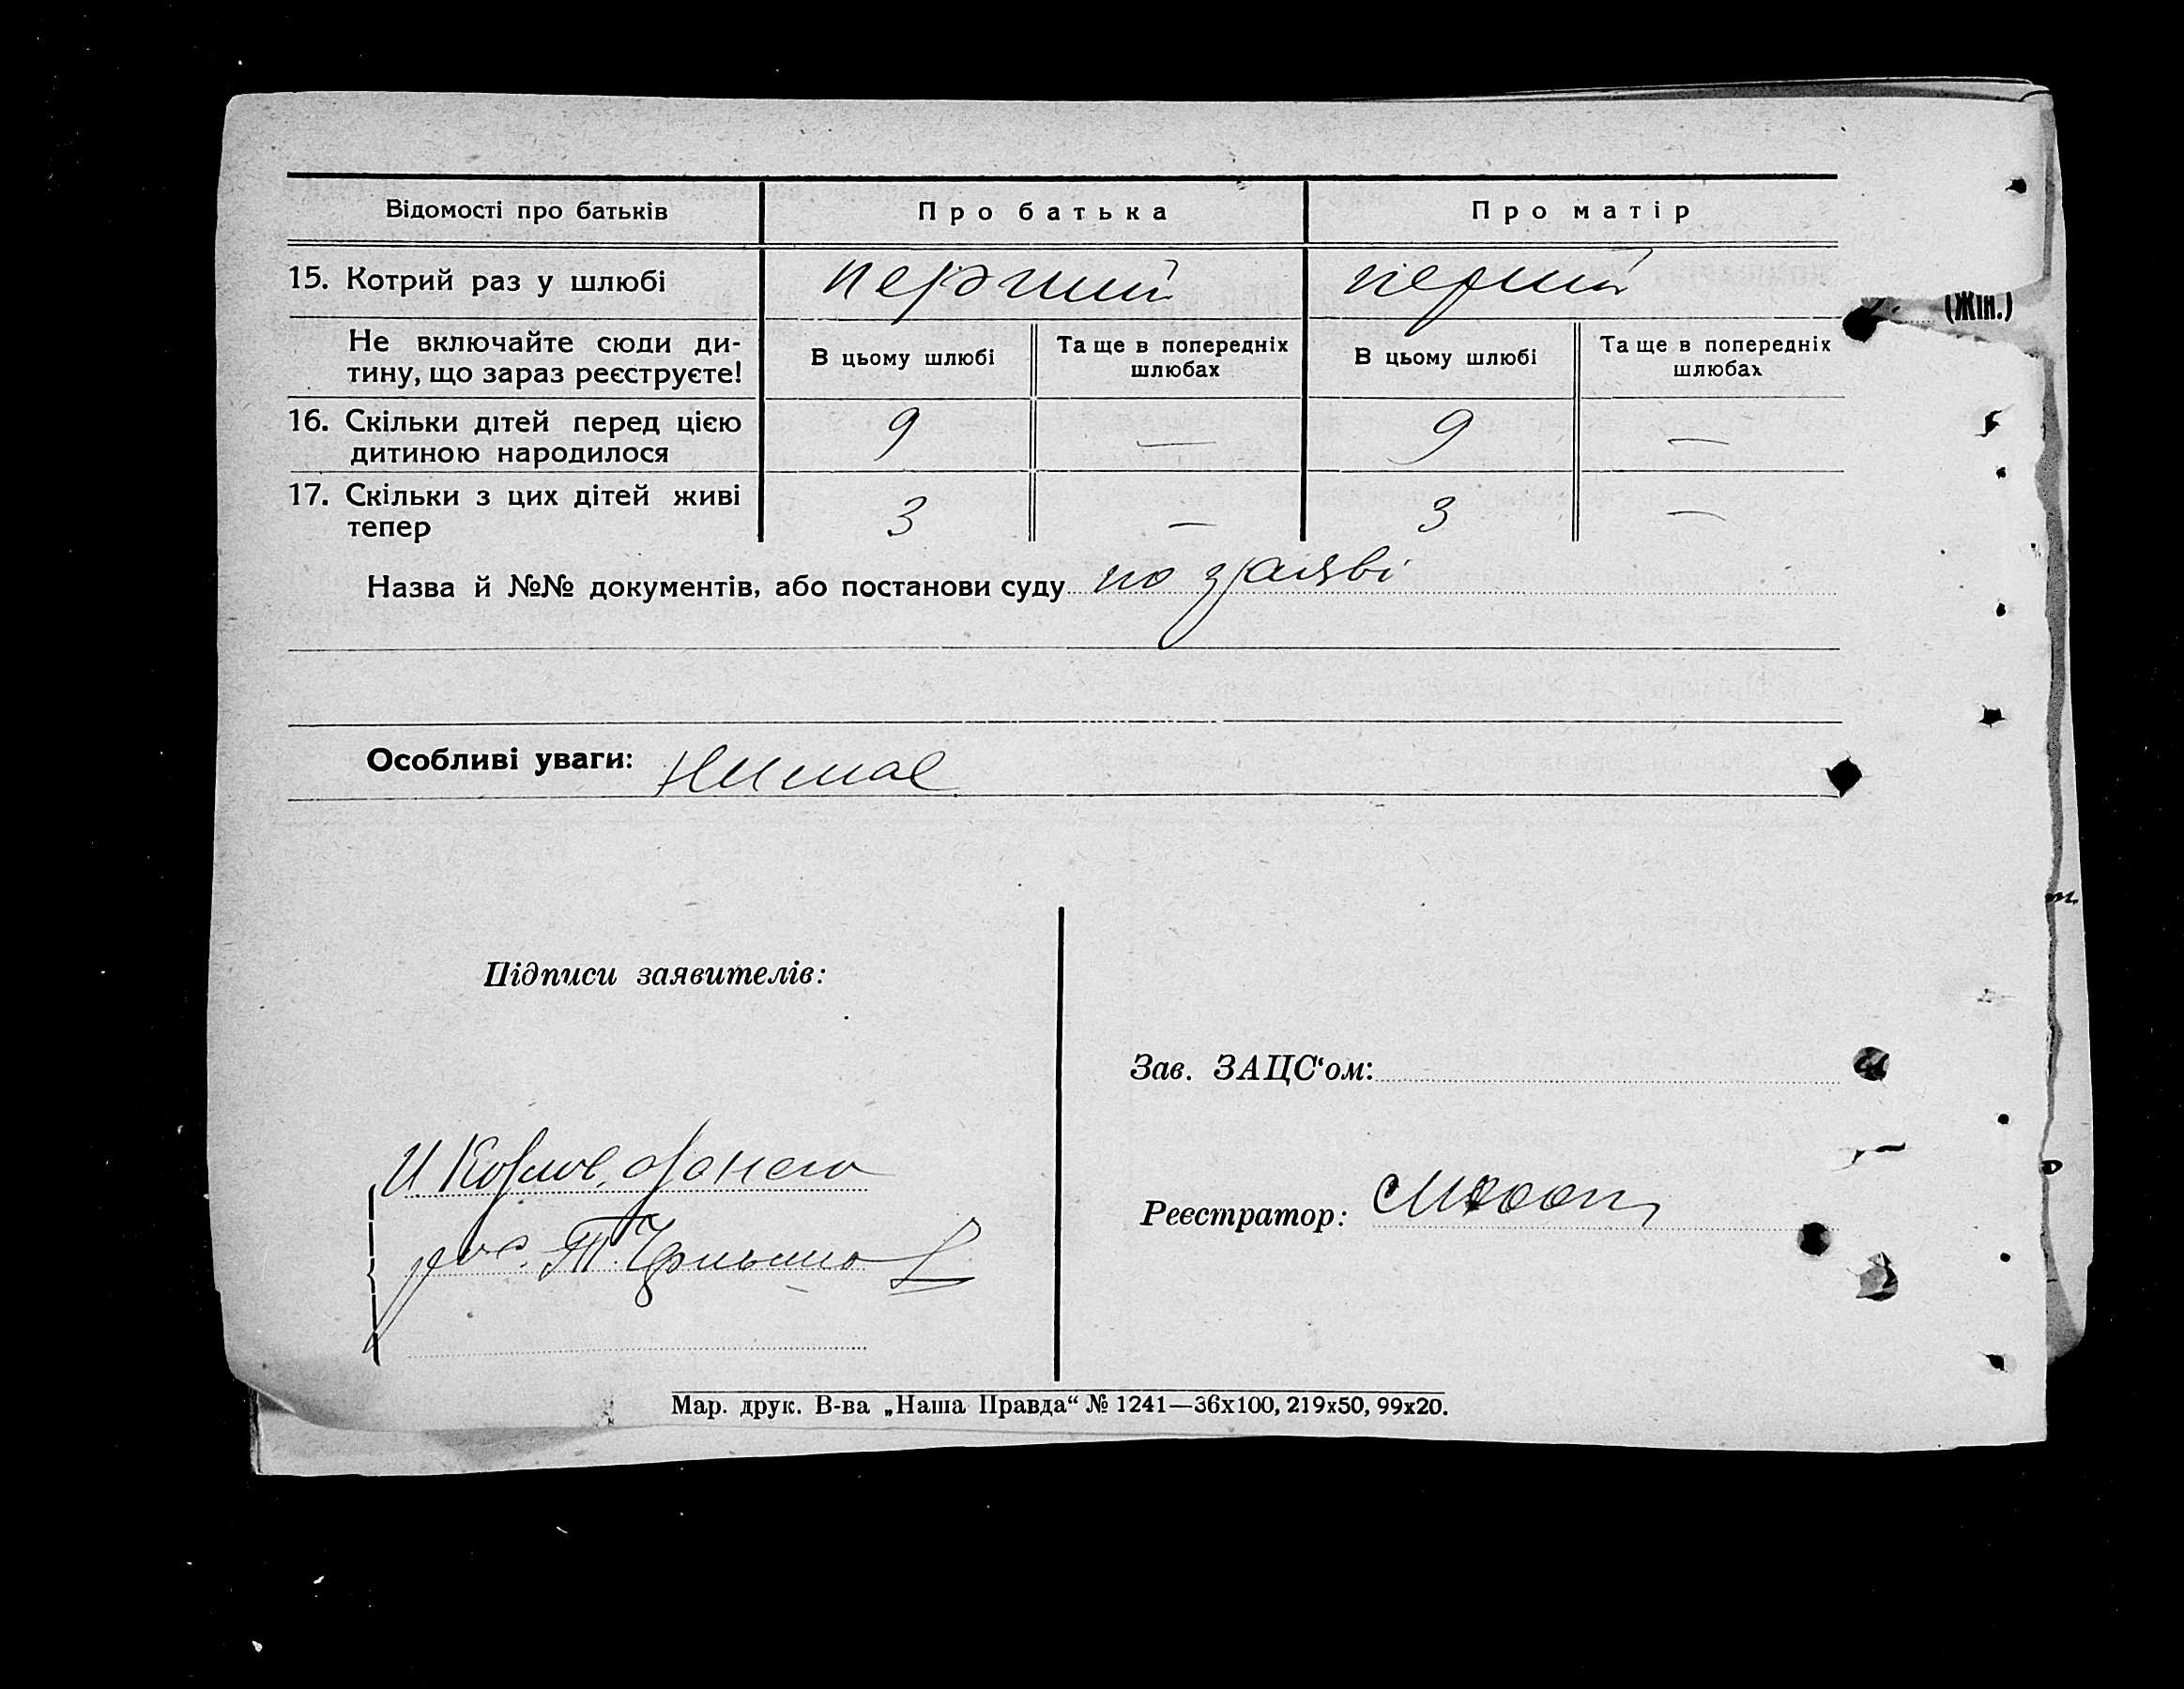 Відомості про батьків Про батька Про матір
15. Котрий раз у шлюбі перший перший
Не включайте сюди ди-
тину, що зараз реєструєте!
В цьому шлюбі Та ще в попередніх шлюбах В цьому шлюбі Та ще в попередніх шлюбах
(Жін.)
16. Скільки дітей перед цією
дитиною народилося 9 — 9 —
17. Скільки з цих дітей живі
тепер 3 — 3 —
Назва й №№ документів, або постанови суду по заяві
Особливі уваги: Нимае
Підписи заявителів:
Зав. ЗАЦС‘ом:
И
Реєстратор:
рос. Т.
Мар. друк. В-ва „Наша Правда“ № 1241—36х100, 219х50, 99х20.